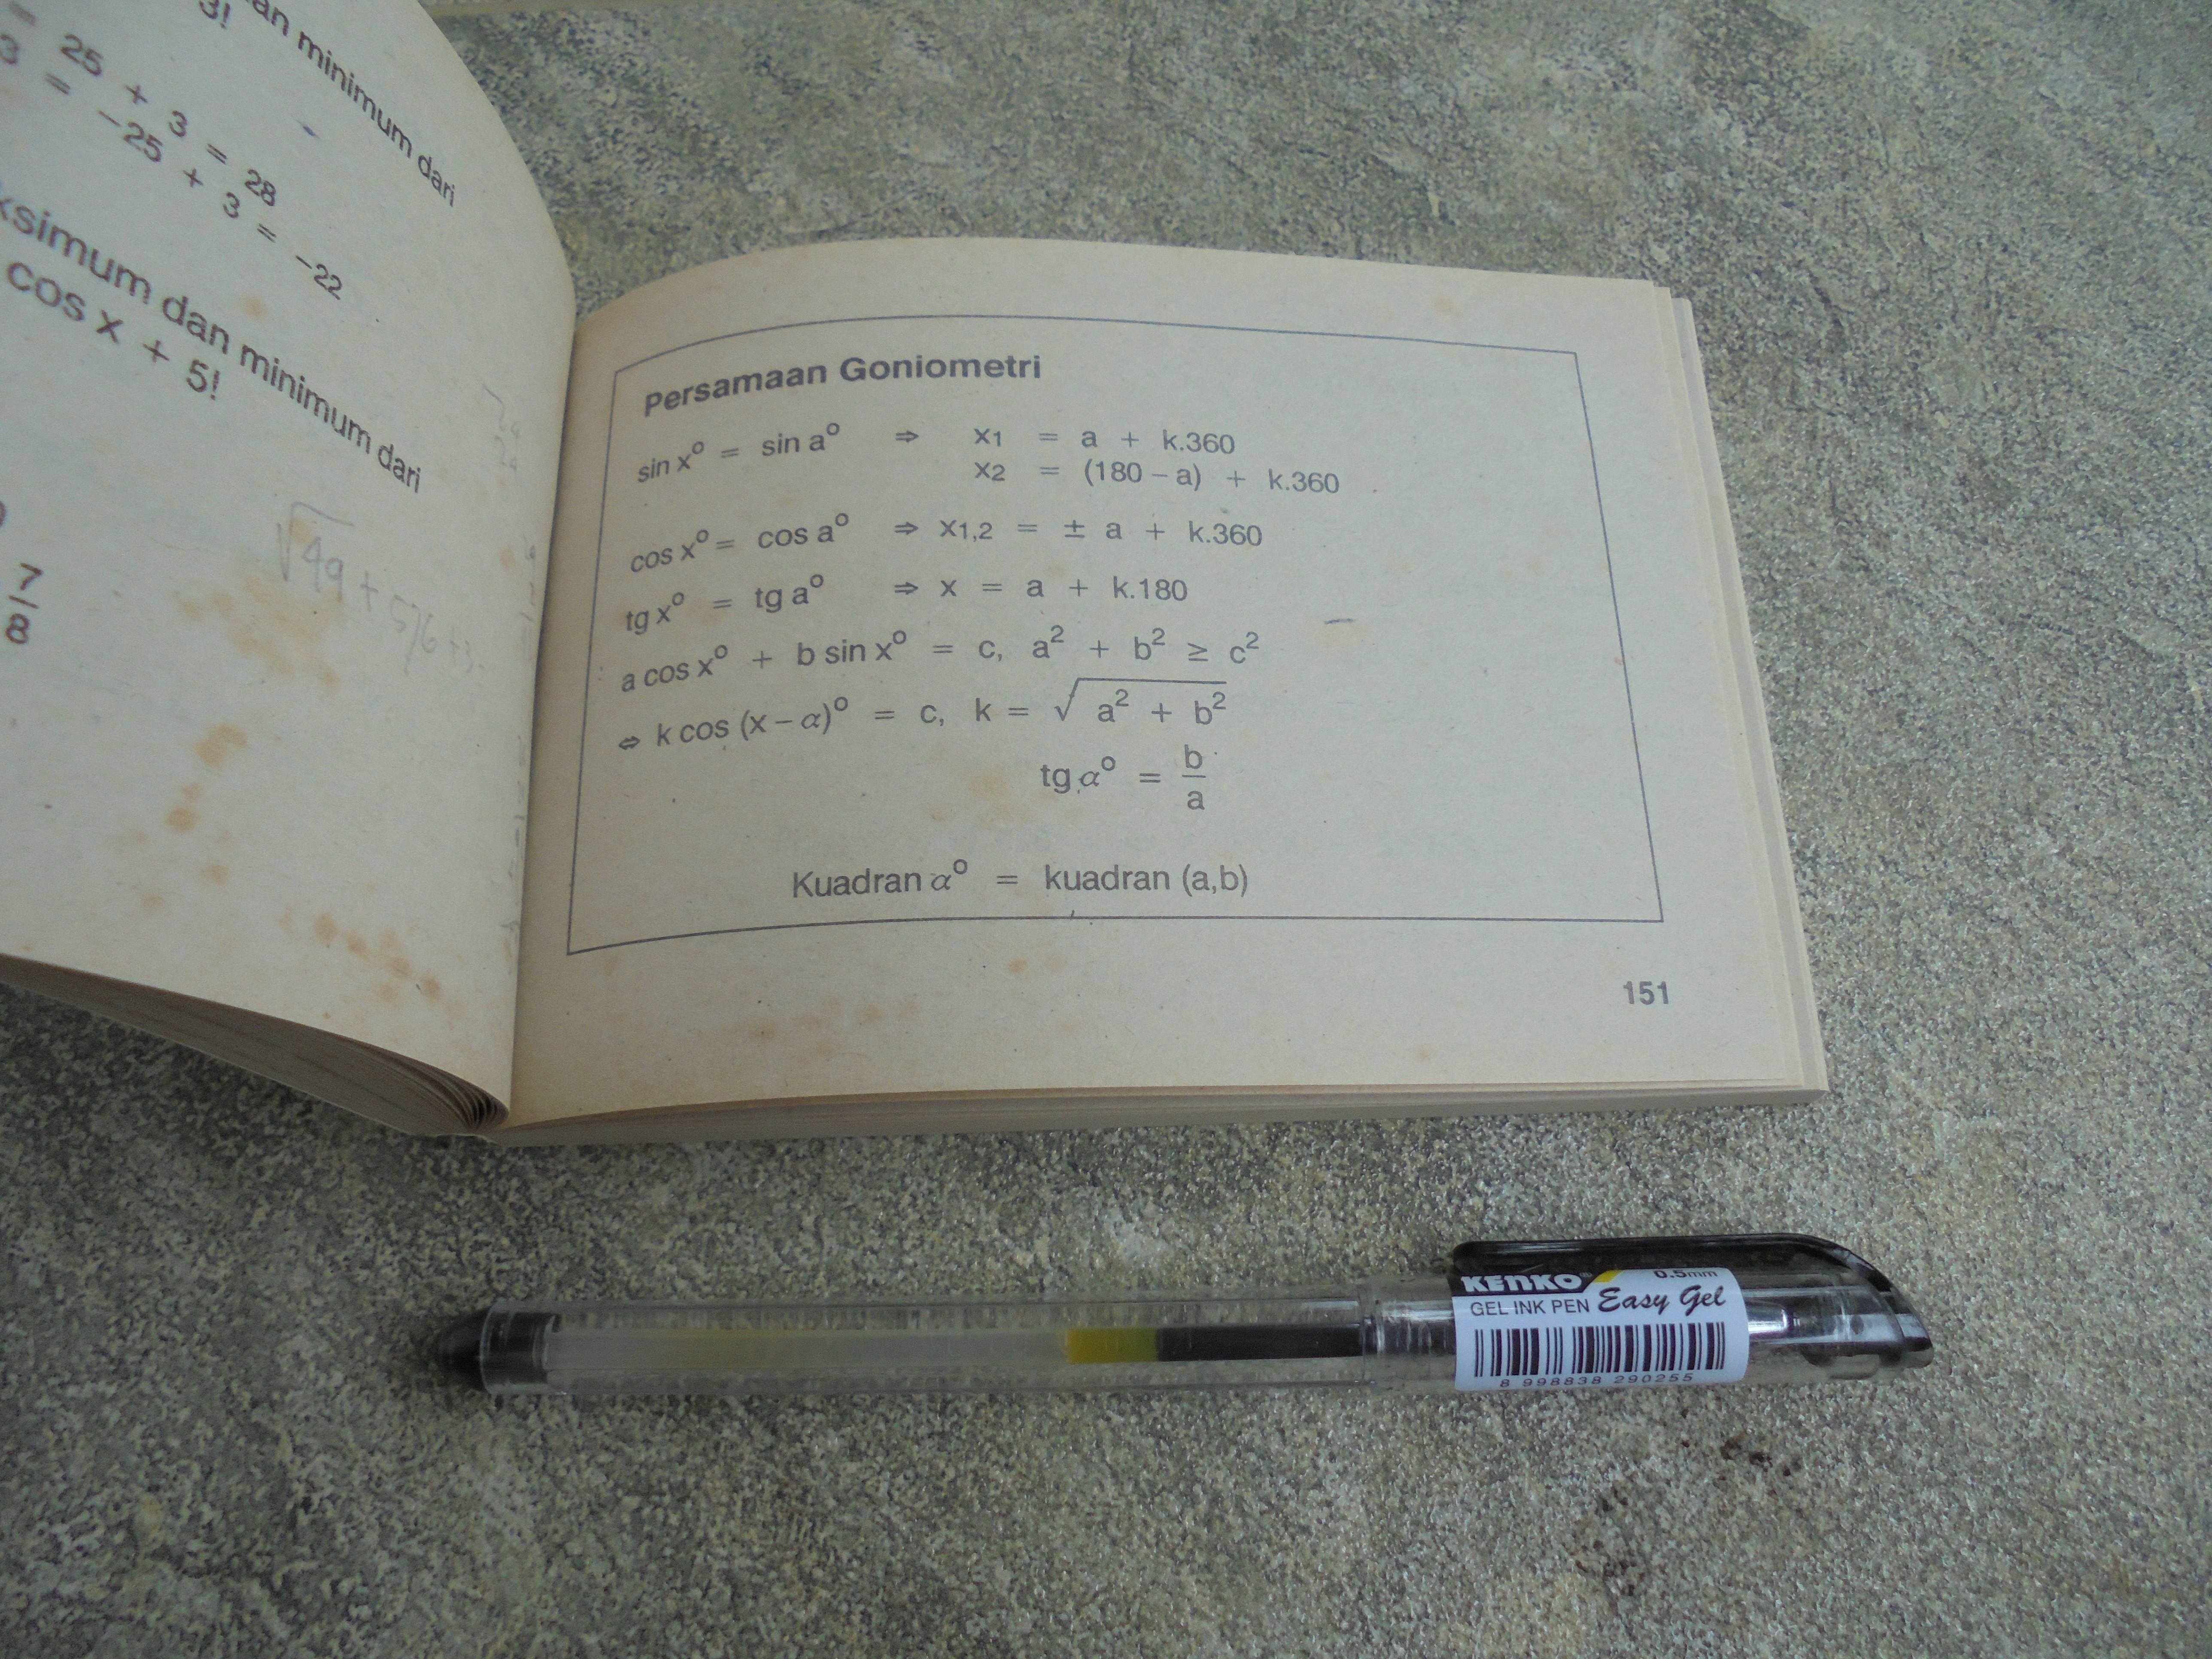 an minimum dari
3!
= 25 + 3 = 28
3 = -25 + 3 = -22
ksimum dan minimum dari
cos x + 5!
7
8
√49 + 576 + 3
Persamaan Goniometri
sin x° = sin a° ⇒ x1 = a + k.360
x2 = (180 – a) + k.360
cos x° = cos a° ⇒ x1,2 = ± a + k.360
tg x° = tg a° ⇒ x = a + k.180
a cos x° + b sin x° = c, a² + b² ≥ c²
⇔ k cos (x – α)° = c, k = √ a² + b²
tg α° = b/a
Kuadran α° = kuadran (a,b)
151
KENKO 0.5mm
GEL INK PEN Easy Gel
8 998838 290255